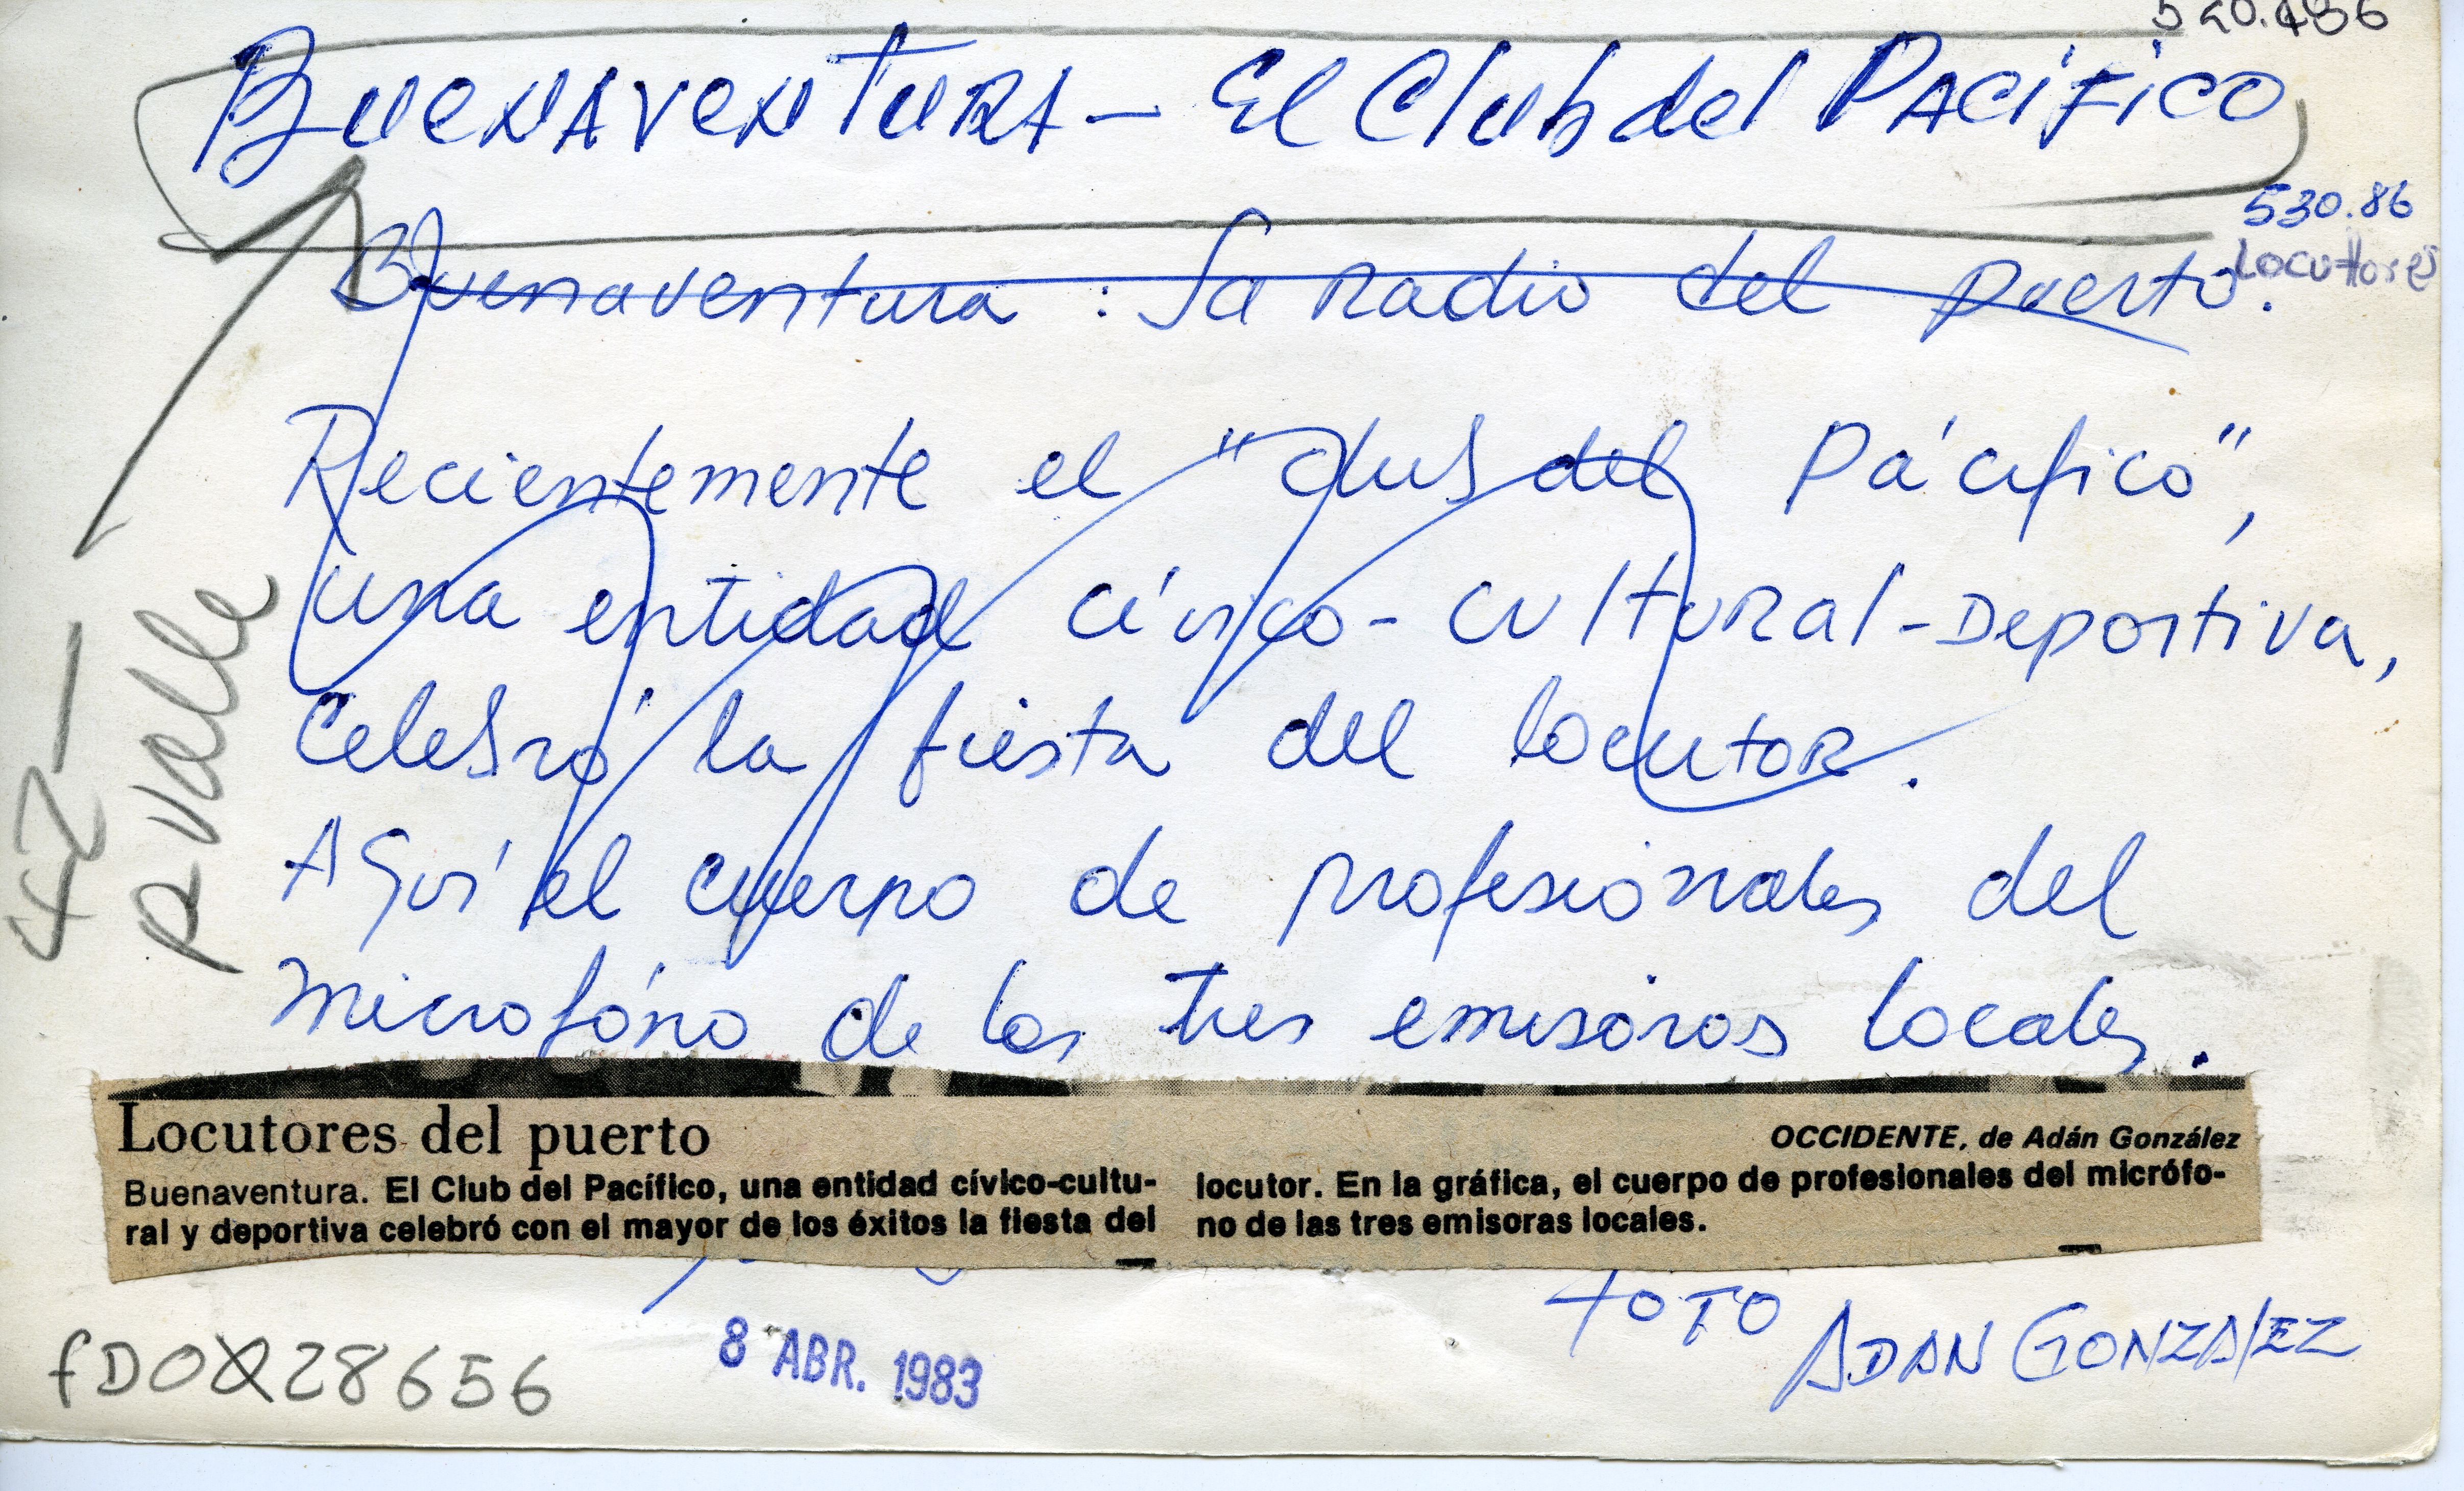 BUENAVENTURA - El Club del PACIFICO
530.86
Locutores
Buenaventura : La Radio del puerto.
Recientemente el "club del Pácifico",
una entidad cívico - cultural - Deportiva,
celebró la fiesta del locutor.
Aquí el cuerpo de profesionales del
microfóno de las tres emisoras locales.
42-
R valle
Locutores del puerto
OCCIDENTE, de Adán González
Buenaventura. El Club del Pacífico, una entidad cívico-cultu-
ral y deportiva celebró con el mayor de los éxitos la fiesta del
locutor. En la gráfica, el cuerpo de profesionales del micrófo-
no de las tres emisoras locales.
FOTO
ADAN GONZALEZ
8 ABR. 1983
fD0028656